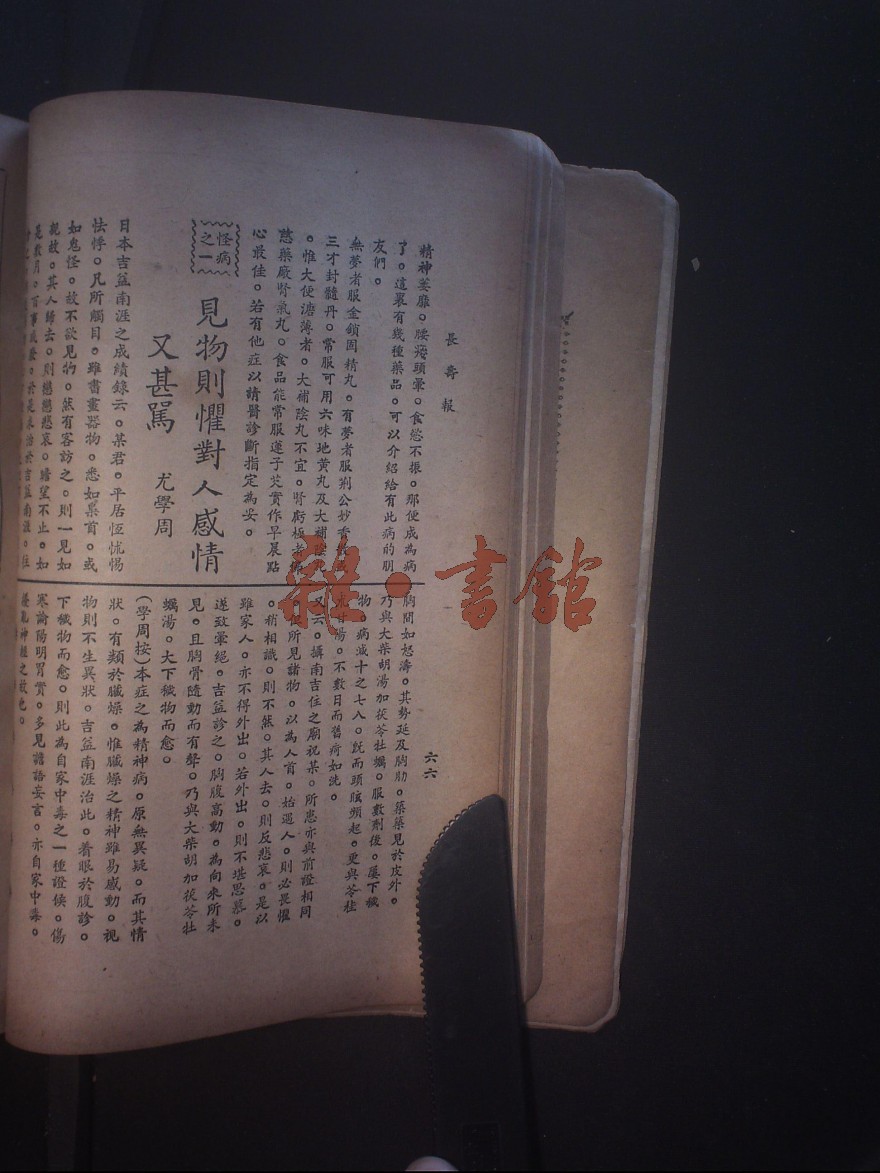 長壽報
六六
精神萎靡。腰痠頭暈。食慾不振。那便成為病
了。這裏有幾種藥品。可以介紹給有此病的朋
友們。
無夢者服金鎖固精丸。有夢者服荊公妙香散或
三才封髓丹。常服可用六味地黃丸及大補陰丸
。惟大便溏薄者。大補陰丸不宜。腎虧極者佛
慈藥廠腎氣丸。食品能常服蓮子芡實作早晨點
心最佳。若有他症以請醫診斷指定為妥。
怪病之一
見物則懼對人感情
又甚篤
尤學周
日本吉益南涯之成績錄云。某君。平居恆怵惕
怯悸。凡所觸目。雖書畫器物。悉如梟首。或
如鬼怪。故不欲見物。然有客訪之。則一見如
親故。其人歸去。則戀戀悲哀。瞻望不止。如
是數月。百事廢。於是求治於吉益南涯。往
胸間如怒濤。其勢延及胸肋。築築見於皮外。
乃與大柴胡湯加茯苓牡蠣。服數劑後。屢下穢
物。病減十之七八。既而頭眩頻起。更與苓桂
朮甘湯。不數日而舊痾如洗。
又云。攝南吉住之廟祝某。所患亦與前證相同
。但所見諸物。以為人首。始遇人。則必畏懼
。稍相識。則不然。其人去。則反悲哀。是以
雖家人。亦不得外出。若外出。則不堪思慕。
遂致暈絕。吉益診之。胸腹高動。為向來所未
見。且胸骨隨動而有聲。乃與大柴胡加茯苓牡
蠣湯。大下穢物而愈。
(學周按)本症之為精神病。原無異疑。而其情
狀。有類於臟燥。惟臟燥之精神雖易感動。視
物則不生異狀。吉益南涯治此。着眼於腹診。
下穢物而愈。則此為自家中毒之一種證候。傷
寒論陽明胃實。多見譫語妄言。亦自家中毒。
擾亂神經之故也。
雜·書館